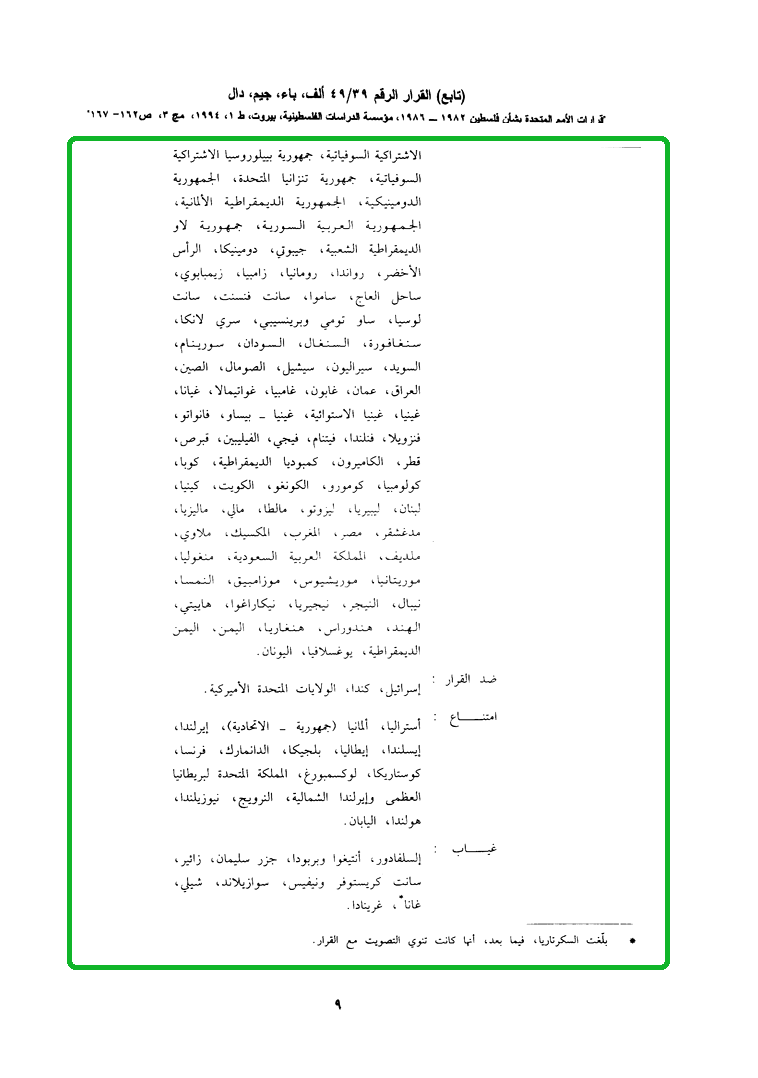 (تابع) القرار الرقم ٤٩/٣٩ ألف، باء، جيم، دال
"قرارات الأمم المتحدة بشأن فلسطين ١٩٨٢ ــ ١٩٨٦، مؤسسة الدراسات الفلسطينية، بيروت، ط ١، ١٩٩٤، مج ٣، ص١٦٢- ١٦٧"
الاشتراكية السوفياتية، جمهورية بييلوروسيا الاشتراكية
السوفياتية، جمهورية تنزانيا المتحدة، الجمهورية
الدومينيكية، الجمهورية الديمقراطية الألمانية،
الجمهورية العربية السورية، جمهورية لاو
الديمقراطية الشعبية، جيبوتي، دومينيكا، الرأس
الأخضر، رواندا، رومانيا، زامبيا، زيمبابوي،
ساحل العاج، ساموا، سانت فنسنت، سانت
لوسيا، ساو تومي وبرينسيبي، سري لانكا،
سنغافورة، السنغال، السودان، سورينام،
السويد، سيراليون، سيشيل، الصومال، الصين،
العراق، عمان، غابون، غامبيا، غواتيمالا، غيانا،
غينيا، غينيا الاستوائية، غينيا ـ بيساو، فانواتو،
فنزويلا، فنلندا، فيتنام، فيجي، الفيليبين، قبرص،
قطر، الكاميرون، كمبوديا الديمقراطية، كوبا،
كولومبيا، كومورو، الكونغو، الكويت، كينيا،
لبنان، ليبيريا، ليزوتو، مالطا، مالي، ماليزيا،
مدغشقر، مصر، المغرب، المكسيك، ملاوي،
ملديف، المملكة العربية السعودية، منغوليا،
موريتانيا، موريشيوس، موزامبيق، النمسا،
نيبال، النيجر، نيجيريا، نيكاراغوا، هاييتي،
الهند، هندوراس، هنغاريا، اليمن، اليمن
الديمقراطية، يوغسلافيا، اليونان.
ضد القرار : إسرائيل، كندا، الولايات المتحدة الأميركية.
امتنـــــاع : أستراليا، ألمانيا (جمهورية ـ الاتحادية)، إيرلندا،
إيسلندا، إيطاليا، بلجيكا، الدانمارك، فرنسا،
كوستاريكا، لوكسمبورغ، المملكة المتحدة لبريطانيا
العظمى وإيرلندا الشمالية، النرويج، نيوزيلندا،
هولندا، اليابان.
غيـــــاب : إلسلفادور، أنتيغوا وبربودا، جزر سليمان، زائير،
سانت كريستوفر ونيفيس، سوازيلاند، شيلي،
غانا*، غرينادا.
* بلّغت السكرتاريا، فيما بعد، أنها كانت تنوي التصويت مع القرار.
٩